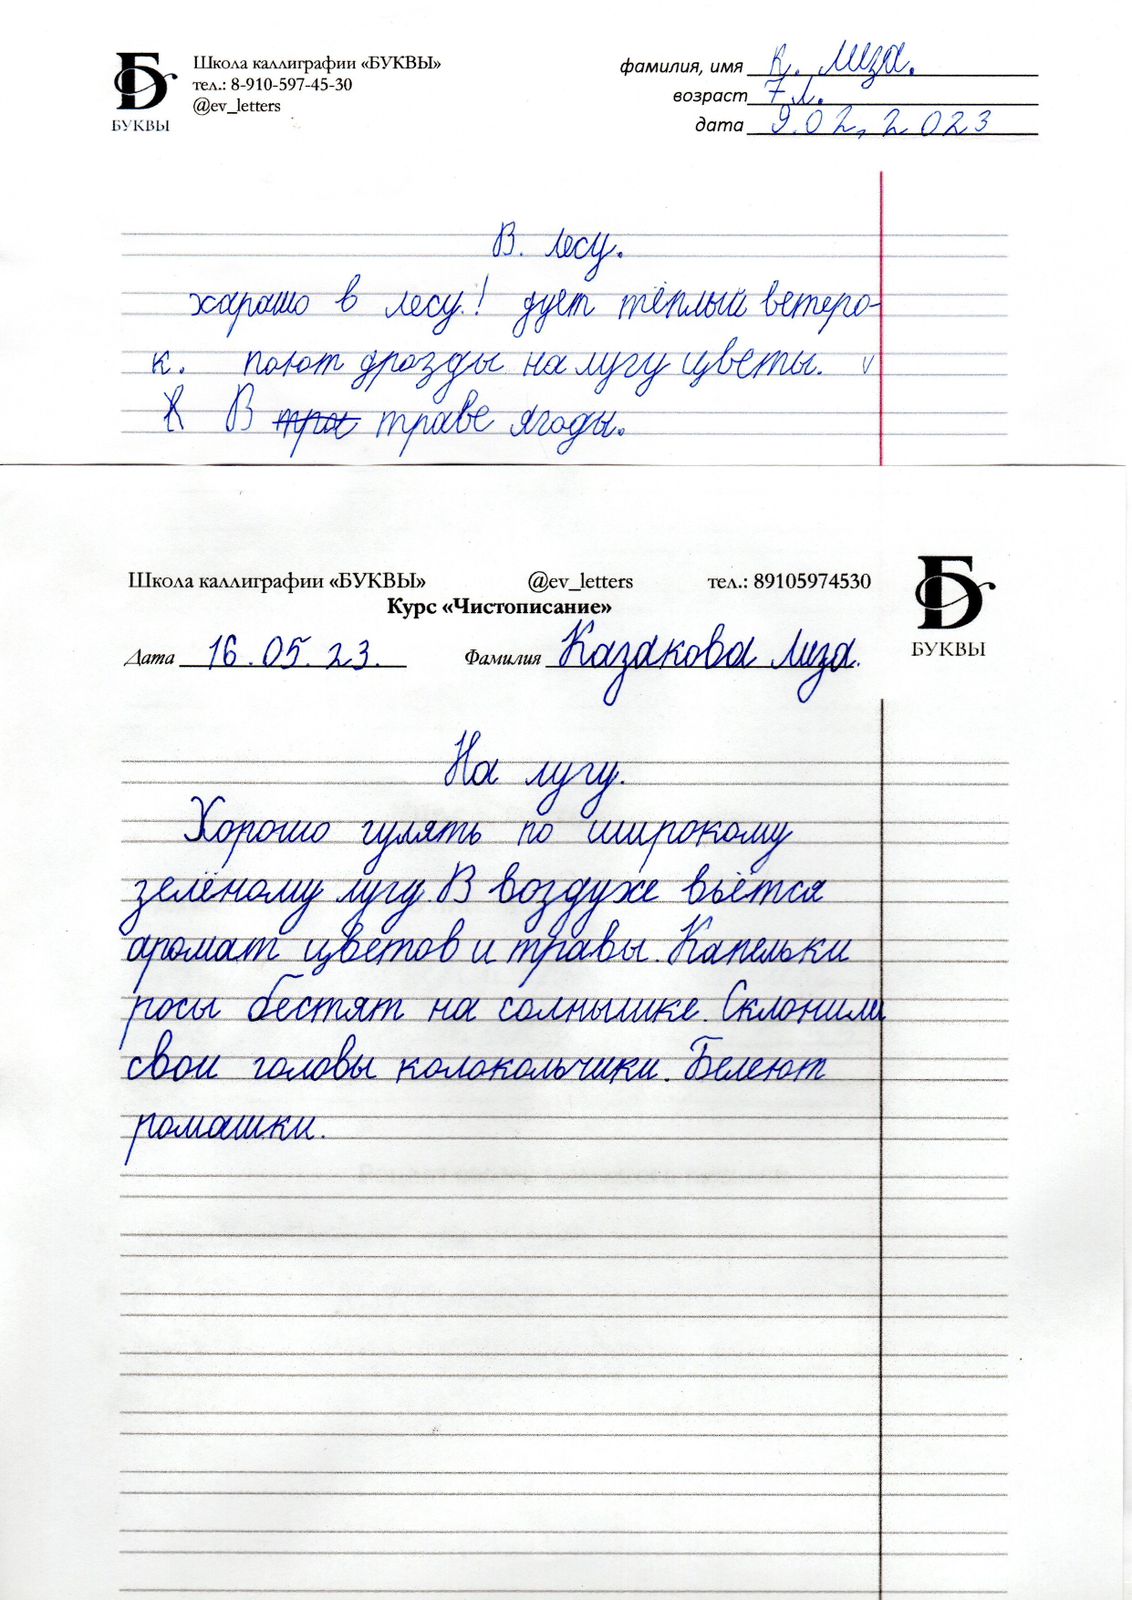 Школа каллиграфии «БУКВЫ»
тел.: 8-910-597-45-30
@ev_letters
Б
БУКВЫ
фамилия, имя К. Лиза.
возраст 7 л.
дата 9.02, 2023
В. лесу.
харашо в лесу.! дует тёплый ветеро-
к. поют дрозды на лугу цветы. v
В В тра траве ягоды.
Школа каллиграфии «БУКВЫ» @ev_letters тел.: 89105974530
Курс «Чистописание»
Б
БУКВЫ
Дата 16.05.23. Фамилия Казакова Лиза.
На лугу.
Хорошо гулять по широкому
зелёному лугу. В воздухе вьётся
аромат цветов и травы. Капельки
росы бестят на солнышке. Склонили
свои головы колокольчики. Белеют
ромашки.